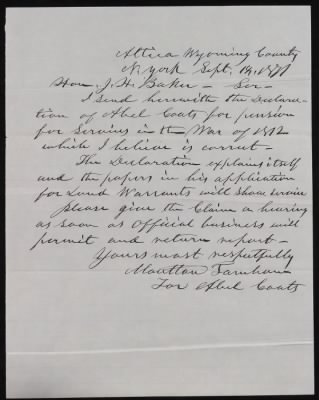 Attica Wyoming County
N York Sept. 19, 1871
Hon. J. H. Baker - Ser -
I send herewith the Declara-
tion of Abel Coats for pension
for Services in the War of 1812
which I believe is correct -
The Declaration explains itself
and the papers in his application
for Land Warrants will show service
please give the Claim a hearing
as soon as official business will
permit and return report -
Yours most respectfully
Moulton Farnham
For Abel Coats